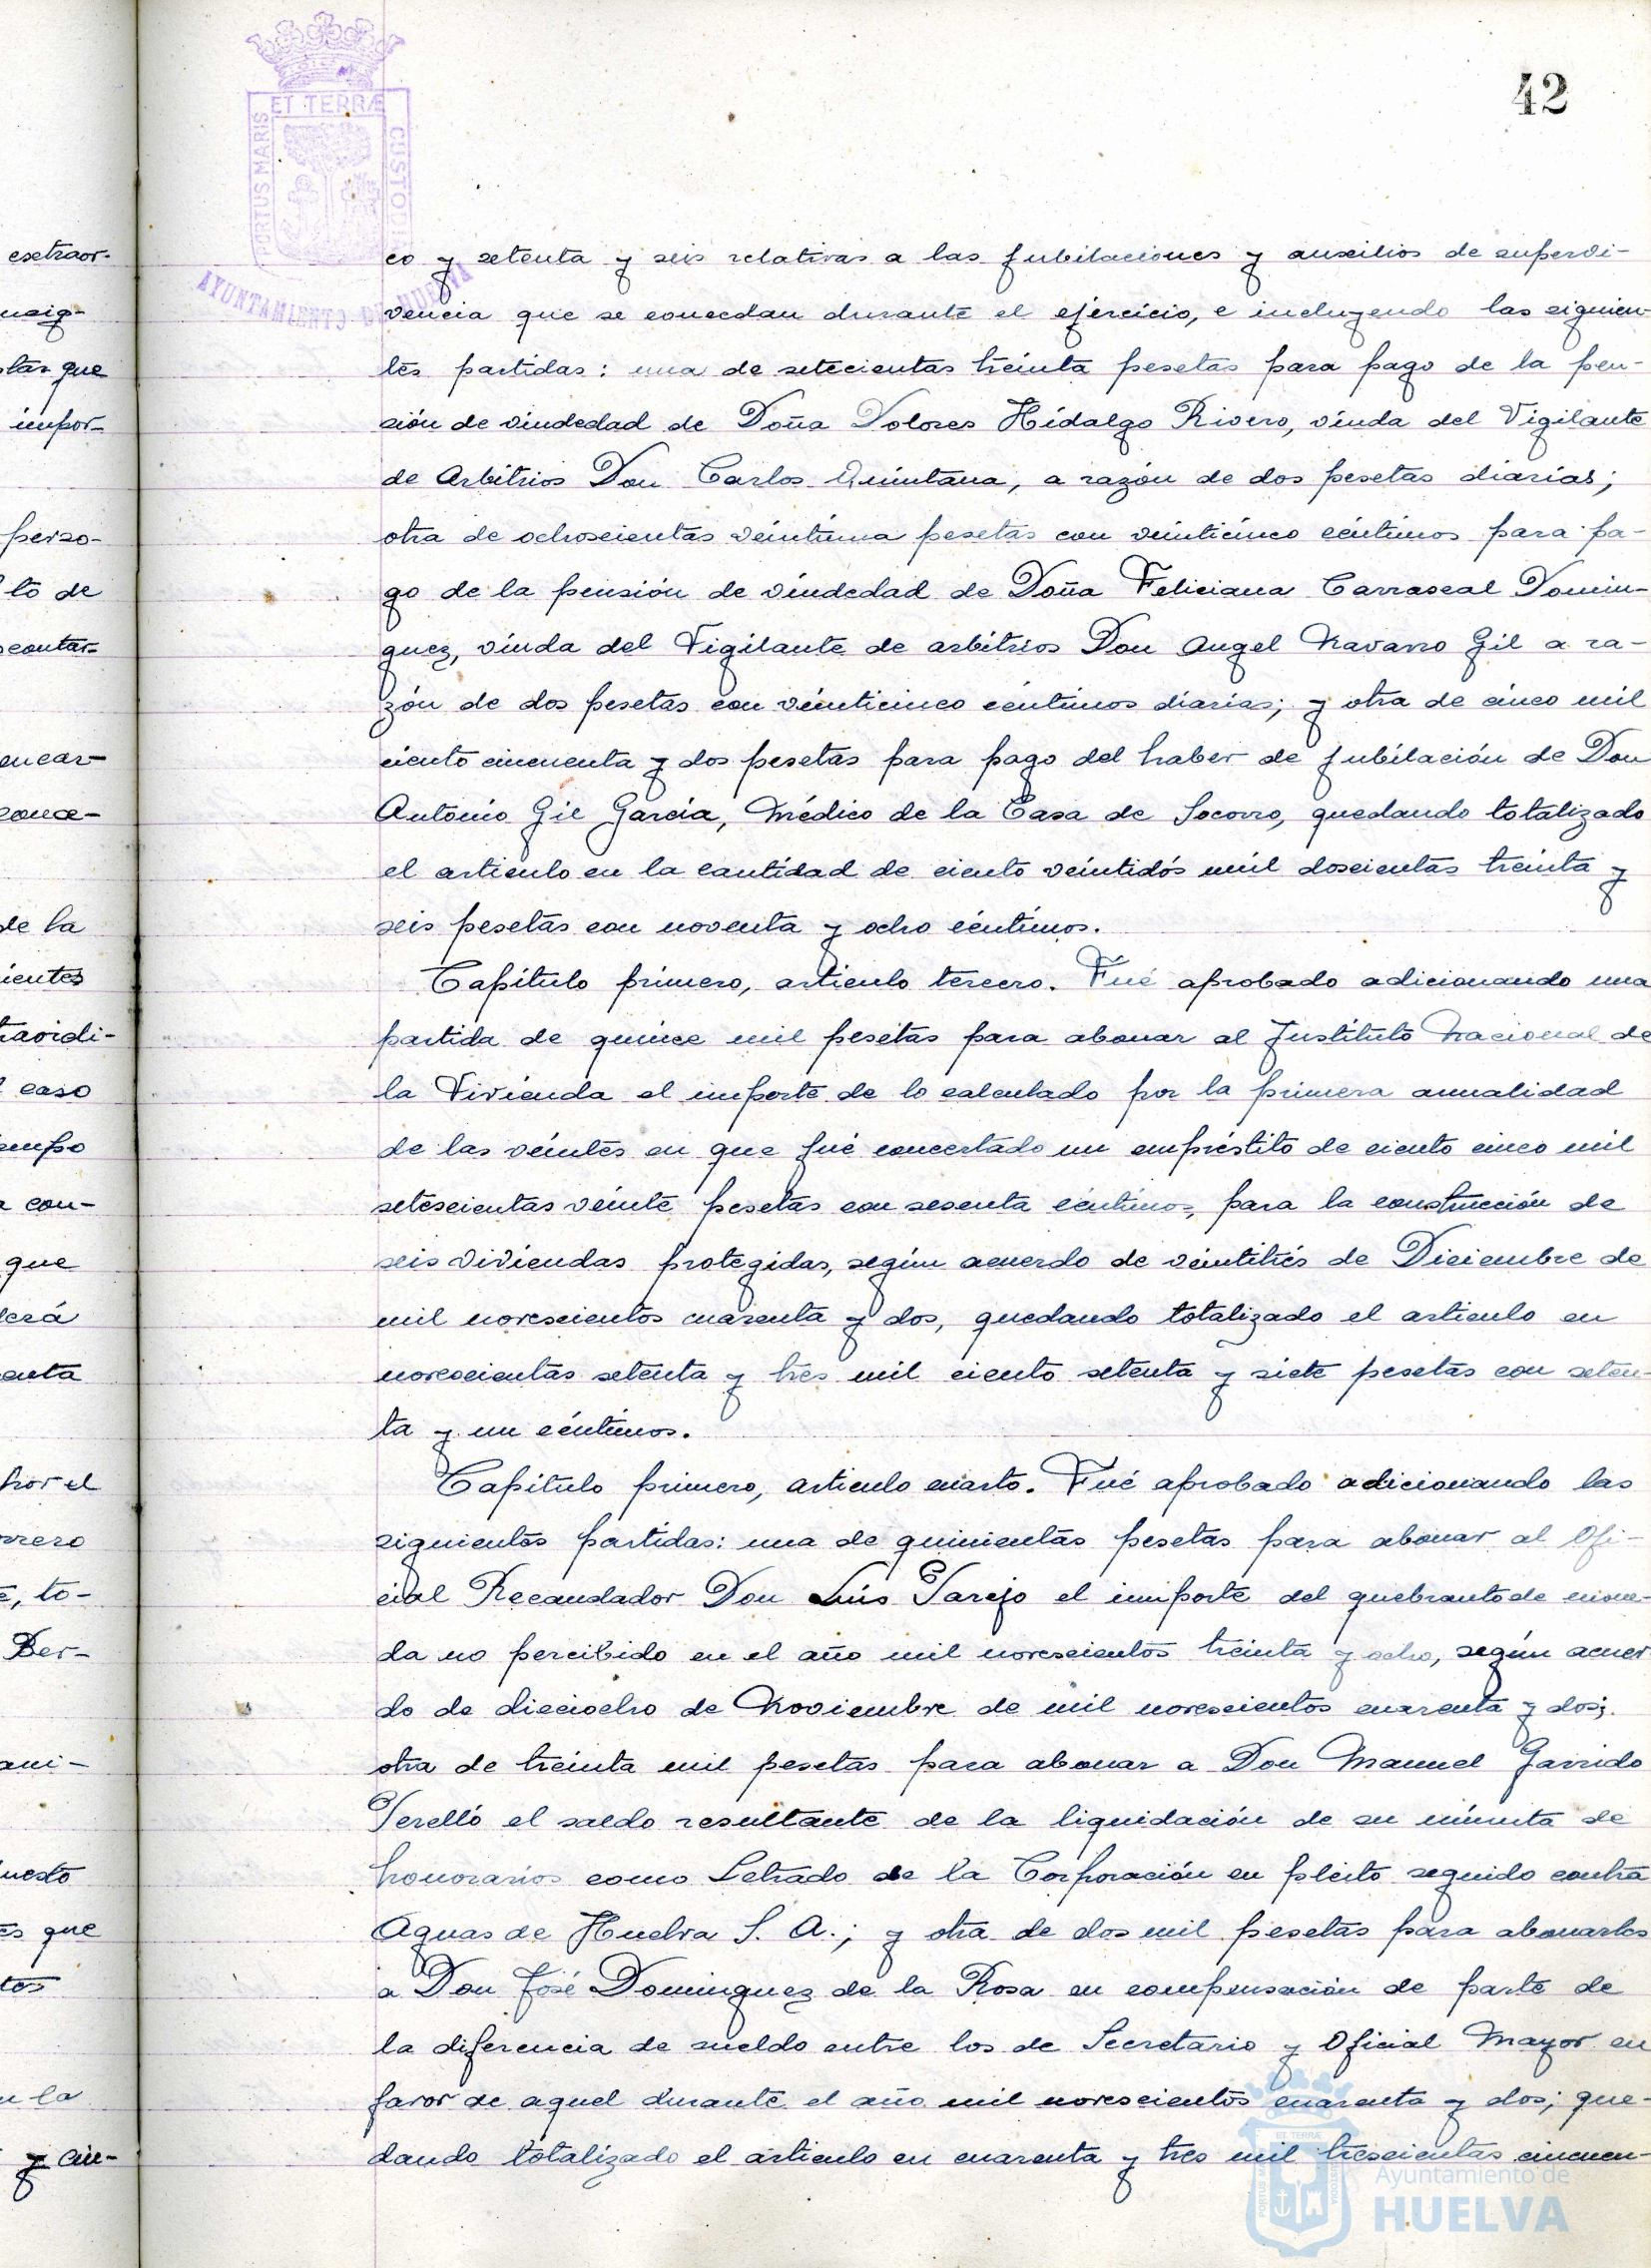 42
PORTUS MARIS ET TERRÆ CUSTODIA
AYUNTAMIENTO DE HUELVA
esctraor-
co y setenta y seis relativas a las jubilaciones y auscilios de supervi-
vencia que se concedan durante el ejercicio, e incluyendo las siguien-
tar que
tes partidas: una de setecientas treinta pesetas para pago de la pen-
impor-
sión de viudedad de Doña Dolores Hidalgo Rivero, viuda del Vigilante
de Arbitrios Don Carlos Quintana, a razón de dos pesetas diarias;
perso-
otra de ochoscientas veintiuna pesetas con veinticinco céntimos para pa-
to de
go de la pensión de viudedad de Doña Feliciana Carrascal Domin-
contar-
guez, viuda del Vigilante de arbitrios Don Angel Navarro Gil a ra-
zón de dos pesetas con veinticinco céntimos diarias; y otra de cinco mil
encar-
ciento cincuenta y dos pesetas para pago del haber de jubilación de Don
conce-
Antonio Gil García, Médico de la Casa de Socorro, quedando totalizado
el articulo en la cantidad de ciento veintidós mil doscientas treinta y
de la
seis pesetas con noventa y ocho céntimos.
cientes
Capítulo primero, articulo tercero. Fué aprobado adicionando una
traordi-
partida de quince mil pesetas para abonar al Instituto Nacional de
caso
la Vivienda el importe de lo calculado por la primera anualidad
empo
de las veintes en que fué concertado un empréstito de ciento cinco mil
a con-
setescientas veinte pesetas con sesenta céntimos, para la construcción de
que
seis viviendas protegidas, según acuerdo de veintitrés de Diciembre de
mil novescientos cuarenta y dos, quedando totalizado el articulo en
enta
novescientas setenta y tres mil ciento setenta y siete pesetas con seten-
ta y un céntimos.
por el
Capítulo primero, articulo cuarto. Fué aprobado adicionando las
rrero
siguientes partidas: una de quinientas pesetas para abonar al Ofi-
, to-
cial Recaudador Don Luis Tarejo el importe del quebranto de mone-
Ber-
da no percibido en el año mil novescientos treinta y ocho, según acuer-
do de dieciocho de Noviembre de mil novescientos cuarenta y dos;
ani-
otra de treinta mil pesetas para abonar a Don Manuel Garrido
Perelló el saldo resultante de la liquidación de su minuta de
uesto
honorarios como Letrado de la Corporación en pleito seguido contra
es que
Aguas de Huelva S. A.; y otra de dos mil pesetas para abonarlos
tes
a Don José Dominguez de la Rosa en compensación de parte de
la diferencia de sueldo entre los de Secretario y Oficial Mayor en
n la
favor de aquel durante el año mil novescientos cuarenta y dos; que-
y cin-
dando totalizado el articulo en cuarenta y tres mil trescientas cincuen-
Ayuntamiento de
HUELVA